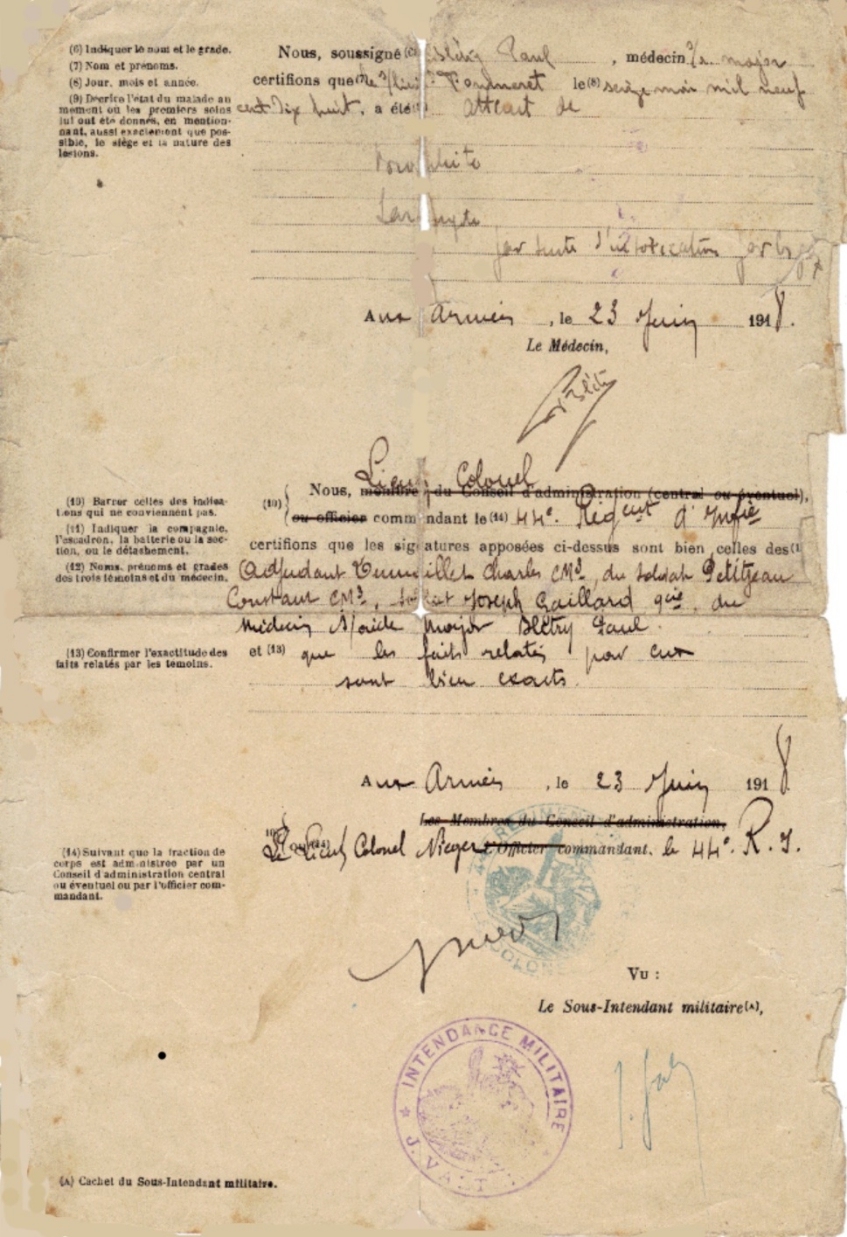 (6) Indiquer le nom et le grade.
(7) Nom et prénoms.
(8) Jour, mois et année.
(9) Décrire l'état du malade au
moment où les premiers soins
lui ont été donnés, en mention-
nant, aussi exactement que pos-
sible, le siège et la nature des
lésions.
Nous, soussigné Paul, médecin major
certifions que le (8) seize mai mil neuf
cent dix huit, a été atteint de
par suite d'intoxication par
Aux Armées, le 23 Juin 1918.
Le Médecin,
(10) Barrer celles des indica-
tions qui ne conviennent pas.
(11) Indiquer la compagnie,
l'escadron, la batterie ou la sec-
tion, ou le détachement.
(12) Noms, prénoms et grades
des trois témoins et du médecin.
(13) Confirmer l'exactitude des
faits relatés par les témoins.
Lieut Colonel
(10) Nous, membre du Conseil d'administration (central ou éventuel),
ou officier commandant le (11) 44e. Régent d'Infie
certifions que les signatures apposées ci-dessus sont bien celles des
Adjudant Charles CM3, du Soldat Petitjean
Constant CM3, Joseph Gaillard du
Médecin Aide Major Blétry Paul.
et (13) que les faits relatés par eux
sont bien exacts.
Aux Armées, le 23 Juin 1918
Les Membres du Conseil d'administration,
Le Lieut Colonel Nieger l'Officier commandant. le 44e. R. I.
(14) Suivant que la fraction de
corps est administrée par un
Conseil d'administration central
ou éventuel ou par l'officier com-
mandant.
Vu :
Le Sous-Intendant militaire (A),
INTENDANCE MILITAIRE
(A) Cachet du Sous-Intendant militaire.